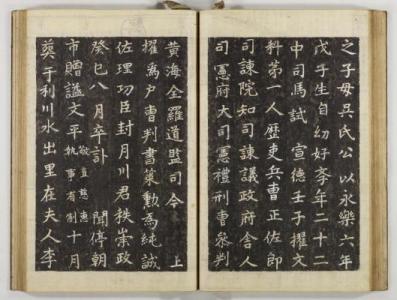 之子母吳氏公以永樂六年
戊子生自幼好斈年二十二
中司馬試 宣德壬子擢文
科第一人歷吏兵曹正佐郎
司諫院知司諫議政府舍人
司憲府大司憲禮刑曹參判
黃海全羅道監司今 上
擢爲戶曹判書策勳爲純誠
佐理功臣封月川君秩崇政
癸巳八月卒訃 聞停朝
市贈諡文平 敏直慈惠 執事有制 十月
葬于利川水出里在夫人李